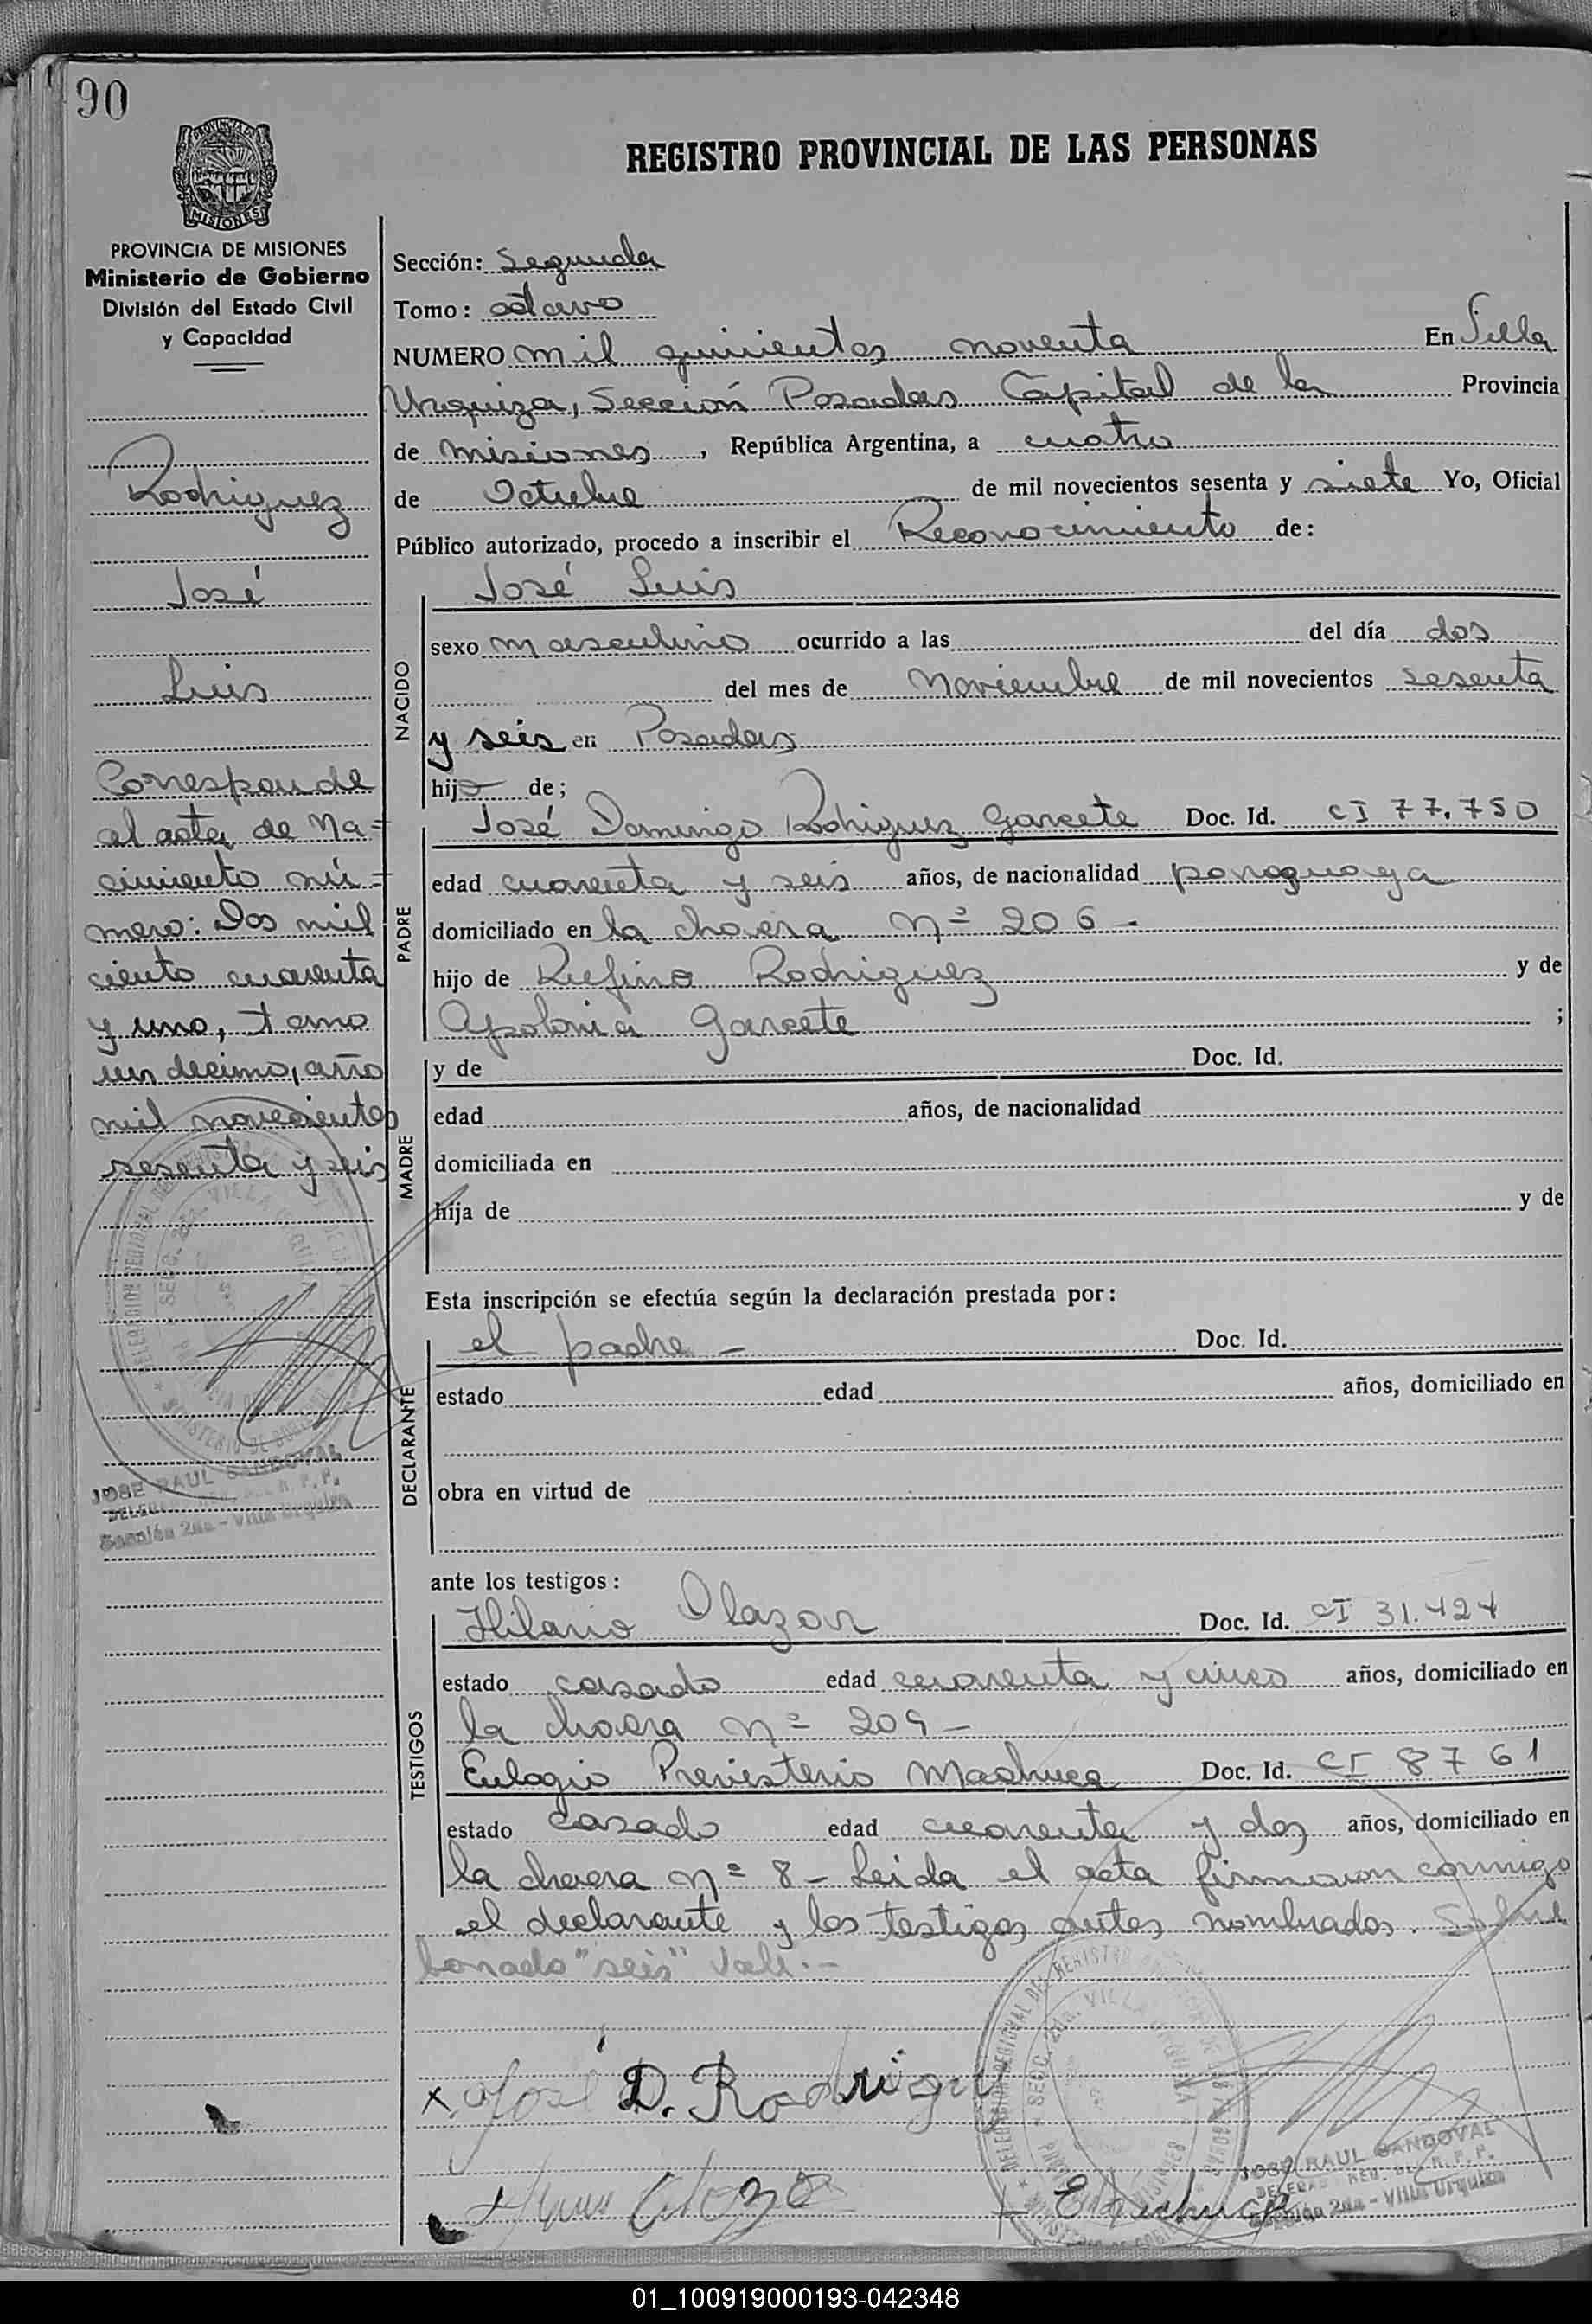 90
PROVINCIA DE MISIONES
MISIONES
PROVINCIA DE MISIONES
Ministerio de Gobierno
División del Estado Civil
y Capacidad
REGISTRO PROVINCIAL DE LAS PERSONAS
Sección: Segunda
Tomo: octavo
NUMERO mil quinientos noventa En Villa
Urquiza, Sección Posadas Capital de la Provincia
de Misiones, República Argentina, a cuatro
de Octubre de mil novecientos sesenta y siete Yo, Oficial
Público autorizado, procedo a inscribir el Reconocimiento de:
NACIDO
José Luis
sexo masculino ocurrido a las del día dos
del mes de Noviembre de mil novecientos sesenta
y seis en Posadas
hijo de;
PADRE
José Domingo Rodriguez Garcete Doc. Id. CI 77.750
edad cuarenta y seis años, de nacionalidad paraguaya
domiciliado en la chacra Nº 206 -
hijo de Rufino Rodriguez y de
Apolonia Garcete ;
MADRE
y de Doc. Id.
edad años, de nacionalidad
domiciliada en
hija de y de
Esta inscripción se efectúa según la declaración prestada por:
DECLARANTE
el padre - Doc. Id.
estado edad años, domiciliado en
obra en virtud de
ante los testigos:
TESTIGOS
Hilario Olazar Doc. Id. CI 31.424
estado casado edad cuarenta y cinco años, domiciliado en
la chacra Nº 209 -
Eulogio Presvisterio Machuca Doc. Id. CI 8761
estado Casado edad cuarenta y dos años, domiciliado en
la chacra Nº 8 - Leida el acta firmaron conmigo
el declarante y los testigos antes nombrados. Sobre
borrado "seis" Vale.-
José D. Rodriguez
E Machuca
JOSE RAUL SANDOVAL
DELEGADO REG. DEL R. P. P.
Sección 2da - Villa Urquiza
Rodriguez
José
Luis
Corresponde
al acta de Na=
cimiento nú=
mero: Dos mil
ciento cuarenta
y uno, tomo
un decimo, año
mil novecientos
sesenta y seis
JOSE RAUL SANDOVAL
DELEGADO REG. DEL R. P. P.
Sección 2da - Villa Urquiza
01_100919000193-042348